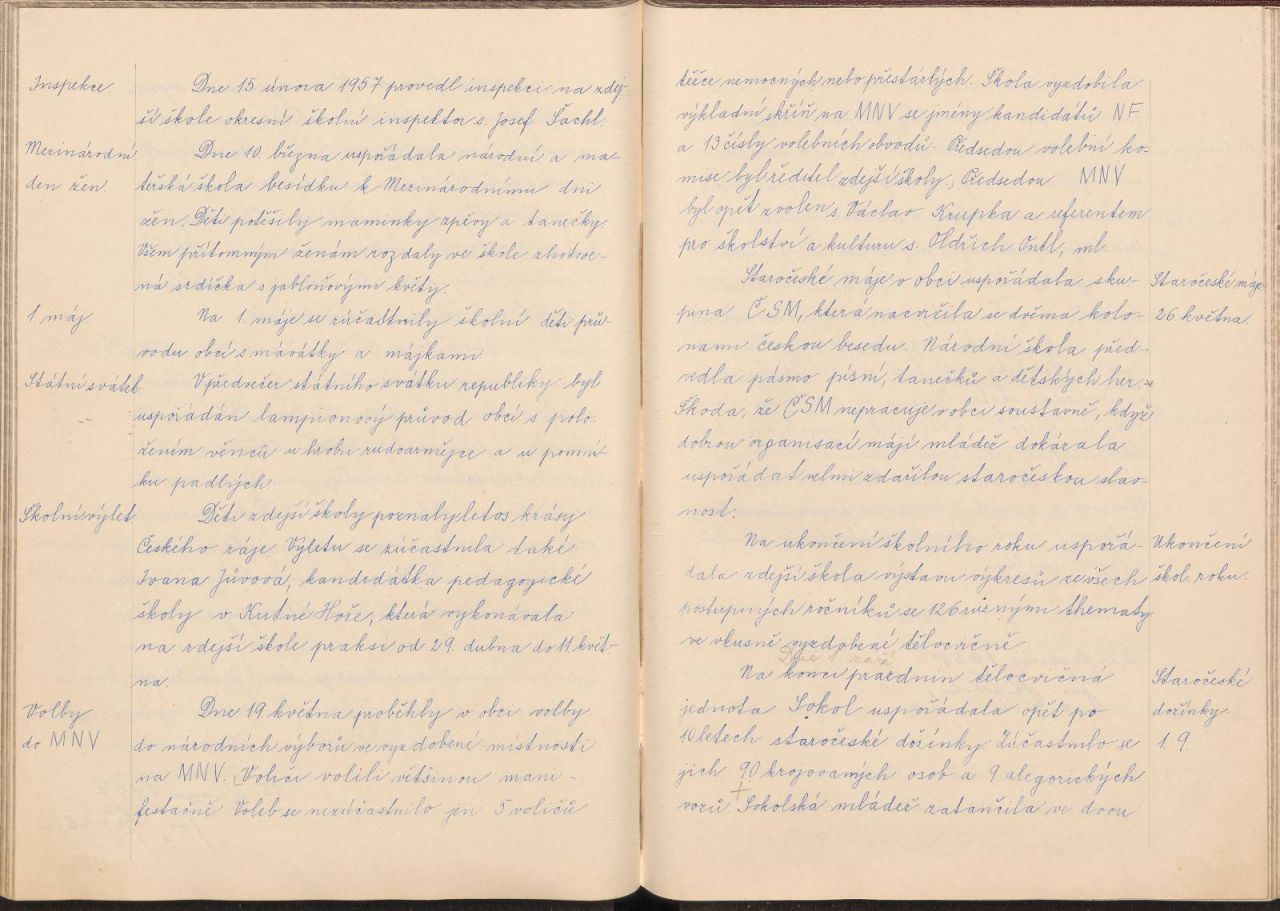 Inspekce.
Dne 15. února 1957 provedl inspekci na zdej-
ší škole okresní školní inspektor s. Josef Šachl.
Mezinárodní
den žen.
Dne 10. března uspořádala národní a ma-
teřská škola besídku k Mezinárodnímu dni
žen. Děti potěšily maminky zpěvy a tanečky.
Všem přítomným ženám rozdaly ve škole zhotove-
ná srdíčka s jabloňovými květy.
1 máj
Na 1. máje se zúčastnily školní děti prů-
vodu obcí s mávátky a májkami.
Státní svátek
V předvečer státního svátku republiky byl
uspořádán lampionový průvod obcí s polo-
žením věnců u hrobu rudoarmějce a u pomní-
ku padlých.
Školní výlet
Děti zdejší školy poznaly letos krásy
Českého ráje. Výletu se zúčastnila také
Ivana Jůvová, kandidátka pedagogické
školy v Kutné Hoře, která vykonávala
na zdejší škole praksi od 29. dubna do 11. květ-
na.
Volby
do MNV.
Dne 19. května proběhly v obci volby
do národních výborů ve vyzdobené místnosti
na MNV. Voliči volili většinou mani-
festačně. Voleb se nezúčastnilo jen 5 voličů
těžce nemocných nebo přestárlých. Škola vyzdobila
výkladní skříň na MNV se jmény kandidátů NF
a 13 čísly volebních obvodů. Předsedou volební ko-
mise byl ředitel zdejší školy. Předsedou MNV
byl opět zvolen s. Václav Krupka a referentem
pro školství a kulturu s. Oldřich Ontl, ml.
Staročeské máje
26. května.
Staročeské máje v obci uspořádala sku-
pina ČSM, která nacvičila se dvěma kolo-
nami českou besedu. Národní škola před-
vedla pásmo písní, tanečků a dětských her.
Škoda, že ČSM nepracuje v obci soustavně, když
dobrou organisací májí mládež dokázala
uspořádat velmi zdařilou staročeskou slav-
nost.
Ukončení
škol. roku.
Na ukončení školního roku uspořá-
dala zdejší škola výstavu výkresů ze všech
postupných ročníků se 126 různými thematy
ve vkusně vyzdobené tělocvičně.
Staročeské
dožínky.
1. 9.
Dne 1. září
Na konci prázdnin tělocvičná
jednota Sokol uspořádala opět po
10 letech staročeské dožínky. Zúčastnilo se
jich 90 krojovaných osob a 9 alegorických
vozů. Sokolská mládež zatančila ve dvou